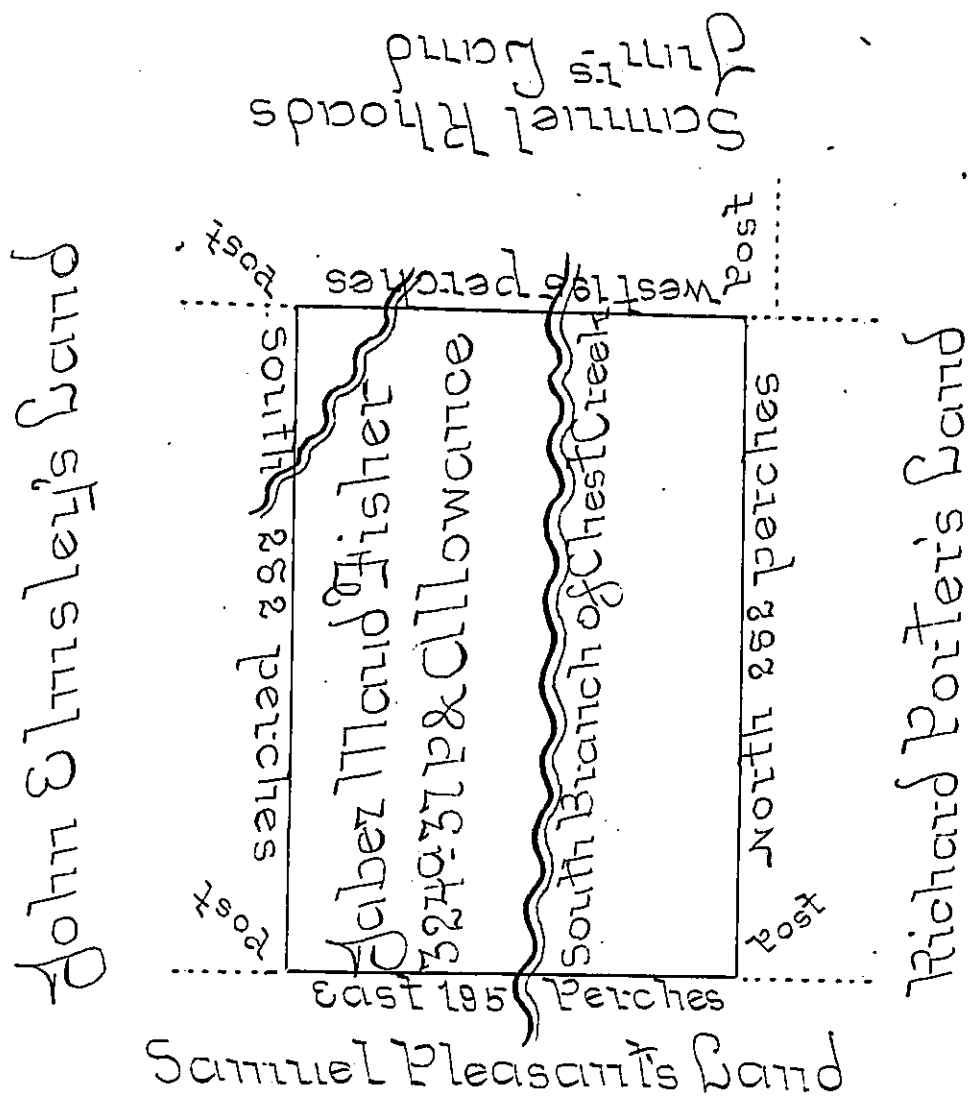 Samuel Rhoads
Jun'rs Land
West 195 perches
Post
Post
John Elmsley's Land
South 282 perches
Jabez Maud Fisher
324a-37P & Allowance
South Branch of Chest Creek
North 282 perches
Richard Porter's Land
Post
Post
East 195 Perches
Samuel Pleasant's Land